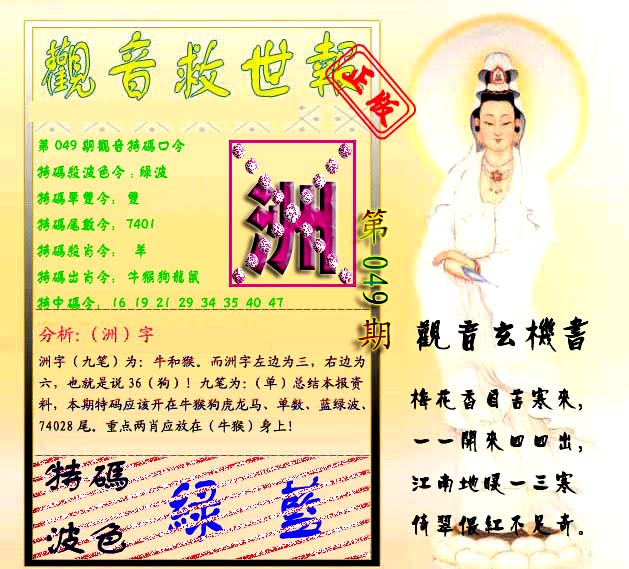 觀音救世報
正版
第049期觀音特碼口令
特碼殺波色令:綠波
特碼單雙令: 雙
特碼尾數令: 7401
特碼殺肖令: 羊
特碼出肖令: 牛猴狗龍鼠
特中碼令: 16 19 21 29 34 35 40 47
洲
第049期
分析:(洲)字
洲字(九笔)为:牛和猴。而洲字左边为三,右边为
六,也就是说36(狗)!九笔为:(单)总结本报资
料,本期特码应该开在牛猴狗虎龙马、单数、蓝绿波、
74028尾。重点两肖应放在(牛猴)身上!
特碼
波色
綠 藍
觀音玄機書
梅花香自苦寒來,
一一開來四四出,
江南地暖一三寒
倚翠偎紅不足奇。